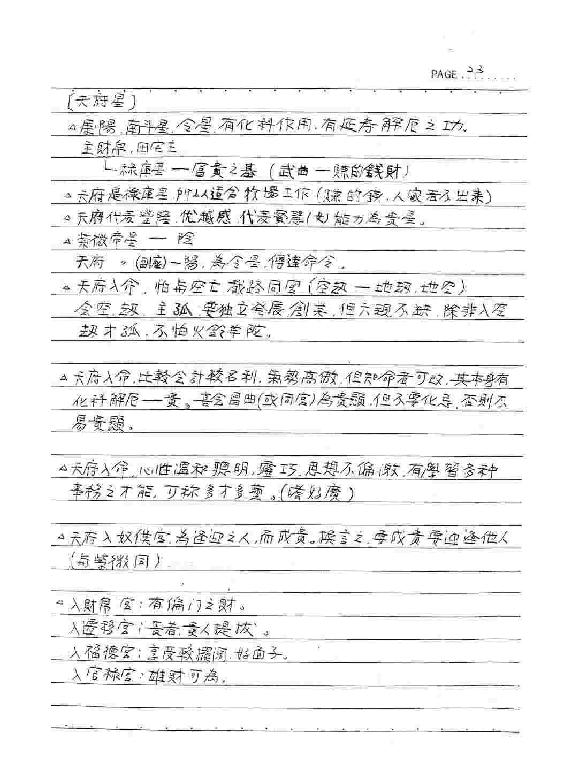 PAGE 23
[天府星]
△屬陽,南斗星,令星,有化科作用,有延壽解厄之功。
主財帛,田宅主
└祿庫星—富貴之基(武曲—賺的錢財)
△天府是祿庫星,所以適合牧場工作(賺的錢,人家看不出來)
△天府代表豐隆,優越感,代表賢慧(女)能力為貴星。
△紫微帝星—陰
天府 〃 (副座)—陽,為令星,傳達命令。
△天府入命,怕與空亡截路同宮(空劫—地劫,地空)
會空劫,主孤,要獨立發展創業,但六親不缺,除非入空
劫才孤,不怕火鈴羊陀。
△天府入命,比較會計較名利,氣勢高傲,但知命者可改,其本身有
化科解厄—貴。喜會昌曲(或同宮)為貴顯,但不要化忌,否則不
易貴顯。
△天府入命,心性溫和聰明,靈巧,思想不偏激,有學習多種
事務之才能,可称多才多藝。(嗜好廣)
△天府入奴僕宮,為逢迎之人,而成貴。換言之,要成貴要迎逢他人
(與紫微同)
△入財帛宮:有偏门之財。
入遷移宮:長者,貴人提拔。
入福德宮:享受較擺闊,好面子。
入官祿宮:雄財可為。